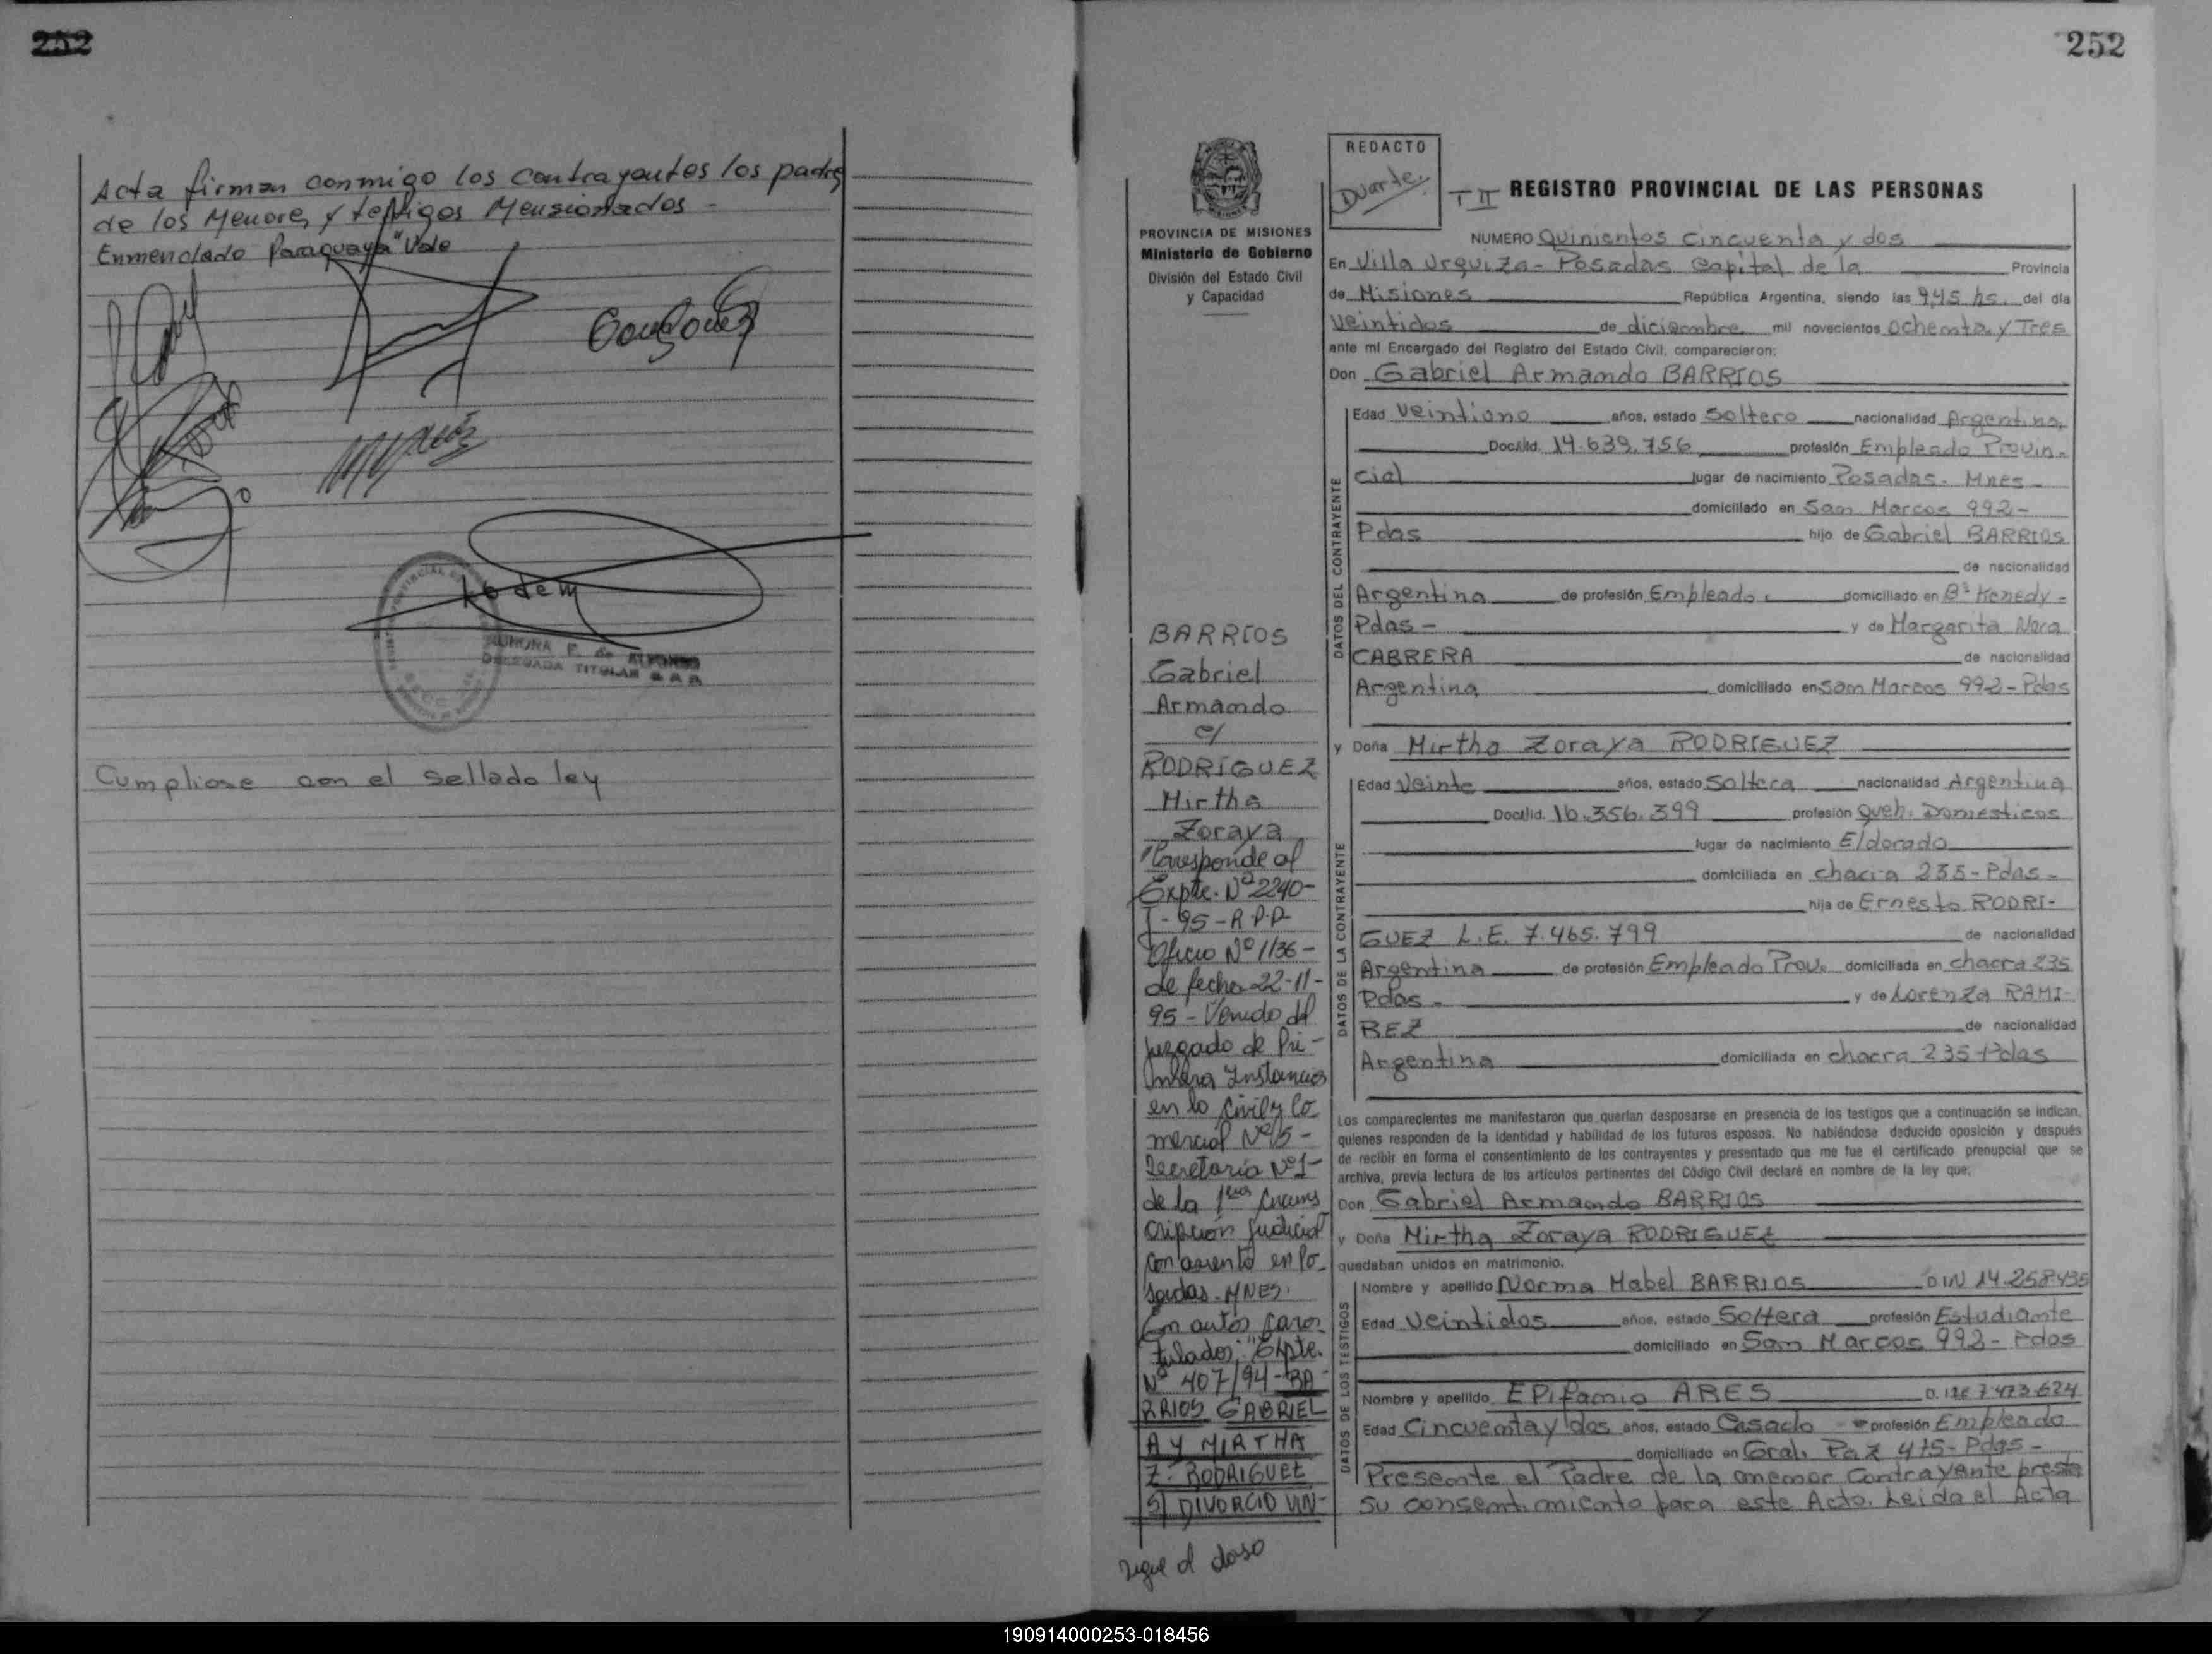 252
Acta firman conmigo los contrayentes los padres
de los Menores y testigos Mensionados -
Enmendado Paraguaya" Vale
AURORA F. de ALFONSO
DELEGADA TITULAR
Cumpliose con el sellado ley
252
PROVINCIA DE MISIONES
Ministerio de Gobierno
División del Estado Civil
y Capacidad
REDACTO
Duarte.
T II REGISTRO PROVINCIAL DE LAS PERSONAS
NUMERO Quinientos cincuenta y dos
En Villa Urquiza - Posadas Capital de la Provincia
de Misiones República Argentina, siendo las 9,45 hs. del día
Veintidos de diciembre mil novecientos ochenta y Tres
ante mí Encargado del Registro del Estado Civil, comparecieron:
Don Gabriel Armando BARRIOS
DATOS DEL CONTRAYENTE
Edad Veintiuno años, estado Soltero nacionalidad Argentina
Doc.Ild. 14.639.756 profesión Empleado Provin-
cial lugar de nacimiento Posadas. Mnes -
domiciliado en San Marcos 992 -
Pdas hijo de Gabriel BARRIOS
de nacionalidad
Argentina de profesión Empleado. domiciliado en Bº Kenedy -
Pdas - y de Margarita Nora
CABRERA de nacionalidad
Argentina domiciliado en San Marcos 992 - Pdas
y Doña Mirtha Zoraya RODRIGUEZ
DATOS DE LA CONTRAYENTE
Edad Veinte años, estado Soltera nacionalidad Argentina
Doc.Ild. 16.356.399 profesión Queh. Domesticos
lugar de nacimiento Eldorado
domiciliada en chacra 235 - Pdas -
hija de Ernesto RODRI-
GUEZ L.E. 7.465.799 de nacionalidad
Argentina de profesión Empleado Prov. domiciliada en chacra 235
Pdas. y de Lorenza RAMI-
REZ de nacionalidad
Argentina domiciliada en chacra 235 - Pdas
Los comparecientes me manifestaron que querían desposarse en presencia de los testigos que a continuación se indican,
quienes responden de la identidad y habilidad de los futuros esposos. No habiéndose deducido oposición y después
de recibir en forma el consentimiento de los contrayentes y presentado que me fue el certificado prenupcial que se
archiva, previa lectura de los artículos pertinentes del Código Civil declaré en nombre de la ley que:
Don Gabriel Armando BARRIOS
y Doña Mirtha Zoraya RODRIGUEZ
quedaban unidos en matrimonio.
DATOS DE LOS TESTIGOS
Nombre y apellido Norma Mabel BARRIOS D.I.N 14.258435
Edad Veintidos años, estado Soltera profesión Estudiante
domiciliado en San Marcos 992 - Pdas
Nombre y apellido EPifamio ARES 7.473.624
Edad Cincuenta y dos años, estado Casado profesión Empleado
domiciliado en Gral. Paz 475 - Pdas -
Presente el Padre de la menor Contrayente presta
su consentimiento para este Acto. Leida el Acta
BARRIOS
Gabriel
Armando
c/
RODRIGUEZ
Mirtha
Zoraya
"Corresponde al
Expte. Nº 2240-
I - 95 - R.P.P
Oficio Nº 1136 -
de fecha 22-11-
95 - Venido del
Juzgado de Pri-
mera Instancia
en lo Civil y Co
mercial Nº 5 -
Secretaria Nº 1 -
de la 1era Circuns
cripción Judicial
con asiento en Po-
sadas - MNES.
En autos cara-
tulados: "Expte.
Nº 407/94 - BA
RRIOS GABRIEL
A Y MIRTHA
Z. RODRIGUEZ
S/ DIVORCIO VIN-
sigue al dorso
190914000253-018456